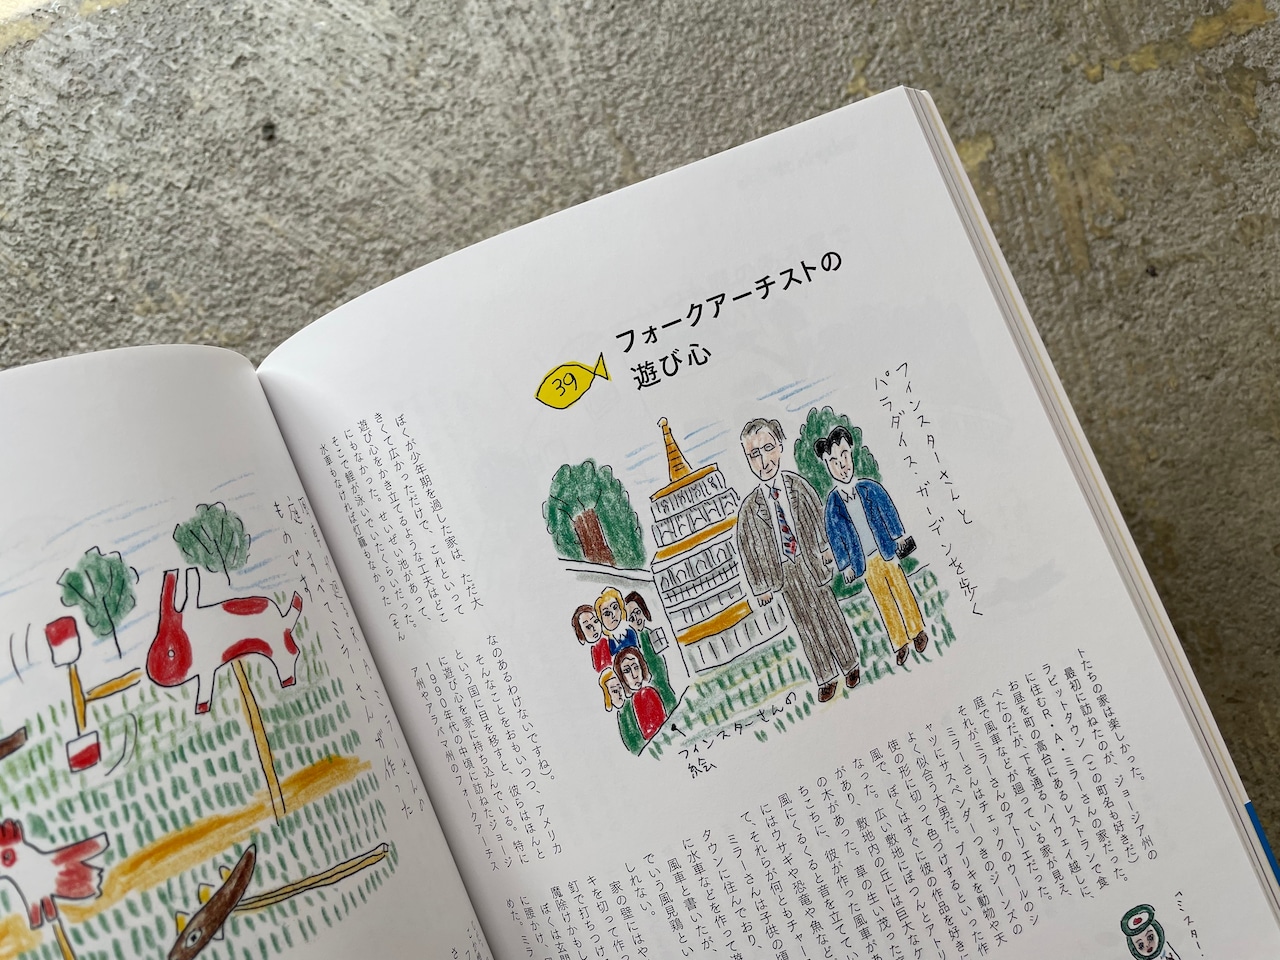 39
フォークアーチストの
遊び心
フィンスターさんと
パラダイス・ガーデンを歩く
フィンスターさんの
絵
ぼくが少年期を過した家は、ただ大
きくて広かっただけで、これといって
遊び心をかき立てるような工夫はどこ
にもなかった。せいぜい池があって、
そこで鯉が泳いでいたくらいだった。
水車もなければ灯籠もなかった（そん
なのあるわけないですね）。
そんなことをおもいつつ、アメリカ
という国に目を移すと、彼らはほんと
に遊び心を家に持ち込んでいる。特に
1990年代の中頃に訪ねたジョージ
ア州やアラバマ州のフォークアーチス
トたちの家は楽しかった。ジョージア州の
最初に訪ねたのが、
ラビットタウン（この町名も好きだ）
に住むR・A・ミラーさんの家だった。
お昼を町の高台にあるレストランで食
べたのだが、下を通るハイウェイ越しに、
庭で風車などが廻っている家が見え、
それがミラーさんのアトリエだった。
ミラーさんはチェックのウールのシ
ャツにサスペンダーつきのジーンズの
よく似合う大男だ。ブリキを動物や天
使の形に切って色づけするといった作
風で、ぼくはすぐに彼の作品を好きに
なった。広い敷地にぽつんとアトリ
があり、敷地内の丘には巨大な
の木があった。草の生い茂った
ちこちに、彼が作った風車が
風にくるくると音を立てて
にはウサギや恐竜や魚など
て、それらが何ともチャー
ミラーさんは子供の頃
タウンに住んでおり、
に水車などを作って遊
風車と書いたが、
でいう風見鶏とい
しれない。
家の壁にはや
キを切って作っ
釘で打ちつけ
魔除けかもし
ぼくは玄関
に腰かけ、
めた。ミラ
ものです。
ミラーさんの
作った
ミスター・